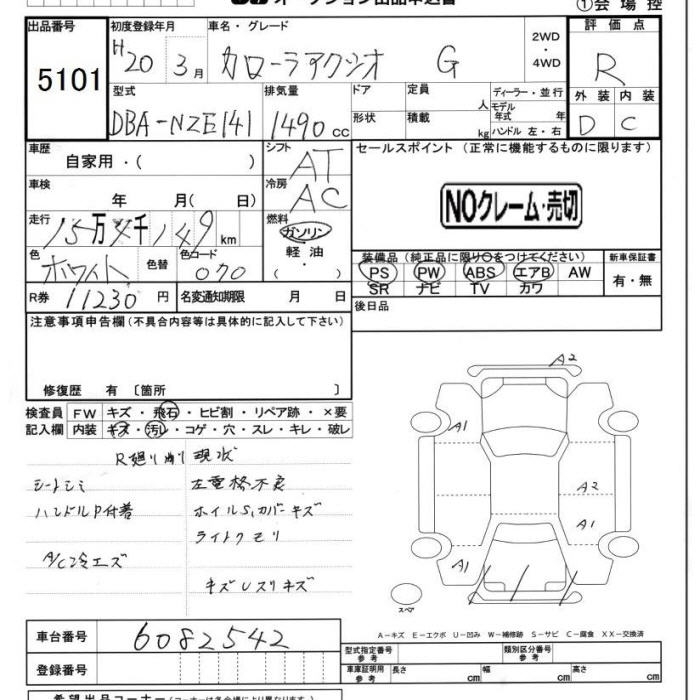 オークション出品申込書
①会場控
出品番号
5101
初度登録年月
H20 3月
車名・グレード
カローラアクシオ G
2WD
・
4WD
評価点
R
外装 内装
D C
型式
DBA-NZE141
排気量
1490 cc
ドア
形状
定員
人
積載
kg
ディーラー・並行
モデル
年式 年
ハンドル 左・右
車歴
自家用・( )
シフト
AT
セールスポイント (正常に機能するものに限ります)
NOクレーム・売切
車検
年 月( 日)
冷房
AC
走行
15万4千149km
燃料
ガソリン
軽油
・( )
色
ホワイト
色替
色コード
070
装備品 (純正品に限り○をつけてください)
PS PW ABS エアB AW
SR ナビ TV カワ
新車保証書
有・無
R券 11230円
名変通知期限 月 日
後日品
注意事項申告欄 (不具合内容等は具体的に記入して下さい)
修復歴 有 〔箇所 〕
検査員
記入欄
FW キズ・飛石・ヒビ割・リペア跡・×要
内装 キズ・汚レ・コゲ・穴・スレ・キレ・破レ
R廻り削現状
シートシミ
左電格不良
ハンドルP付着
ホイルS,カバーキズ
ライトクモリ
A/C冷エズ
キズUスリキズ
A2
A1
A2
A1
A1
スペア
A-キズ E-エクボ U-凹み W-補修跡 S-サビ C-腐食 XX-交換済
車台番号
6082542
登録番号
型式指定番号
参考
類別区分番号
参考
車庫証明用
参考
長さ cm
幅 cm
高さ cm
希望出品コーナー(コーナーは各会場により異なります)